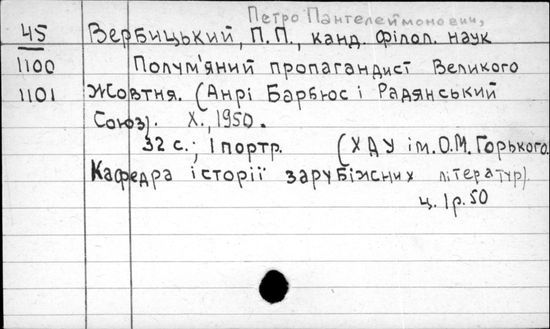 Петро Пантелеймонович,
45 Вербицький, П.П., канд. філол. наук
1100 Полум'яний пропагандист Великого
1101 Жовтня. (Анрі Барбюс і Радянський
Союз). Х., 1950.
32 с.; 1 портр. (ХДУ ім. О.М. Горького.
Кафедра історії зарубіжних літератур).
ц. 1р.50